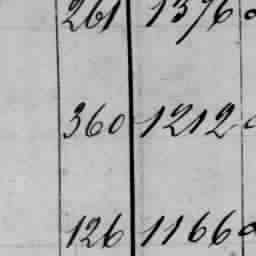 261 1376
360 1212
126 1166